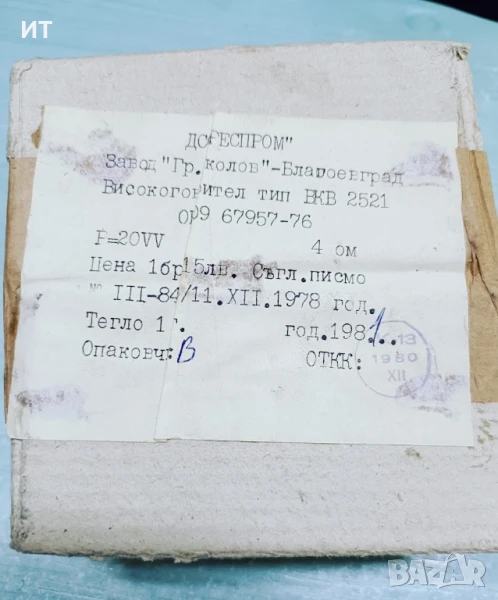 ИТ
ДСО"РЕСПРОМ"
Завод "Гр. колов"-Благоевград
Високоговорител тип ВКВ 2521
ОН9 67957-76
P=20VV 4 ом
Цена 1бр15лв. Съгл.писмо
№ III-84/11.XII.1978 год.
Тегло 1 г. год.1981..
Опаковч: В ОТКК:
13
1980
XII
BAZAR